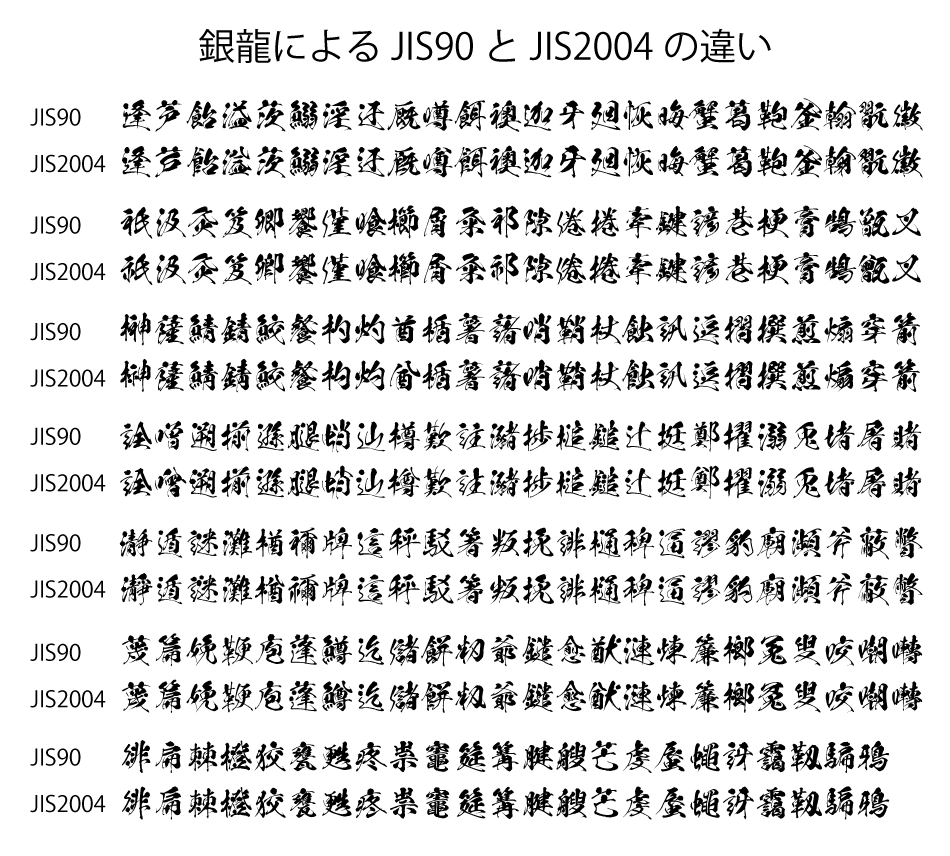 銀龍による JIS90 と JIS2004 の違い
JIS90 逢芦飴溢茨鰯淫迂厩噂餌襖迦牙廻恢晦蟹葛鞄釜翰翫徽
JIS2004 逢芦飴溢茨鰯淫迂厩噂餌襖迦牙廻恢晦蟹葛鞄釜翰翫徽
JIS90 祇汲灸笈卿饗僅喰櫛屑粂祁隙倦捲牽鍵諺巷梗膏鵠甑叉
JIS2004 祇汲灸笈卿饗僅喰櫛屑粂祁隙倦捲牽鍵諺巷梗膏鵠甑叉
JIS90 榊薩鯖錆鮫餐杓灼酋楯薯藷哨鞘杖蝕訊逗摺撰煎煽穿箭
JIS2004 榊薩鯖錆鮫餐杓灼酋楯薯藷哨鞘杖蝕訊逗摺撰煎煽穿箭
JIS90 詮噌遡揃遜腿蛸辿樽歎註瀦捗槌鎚辻挺鄭擢溺兎堵屠賭
JIS2004 詮噌遡揃遜腿蛸辿樽歎註瀦捗槌鎚辻挺鄭擢溺兎堵屠賭
JIS90 瀞遁謎灘楢禰牌這秤駁箸叛挽誹樋稗逼謬豹廟瀕斧蔽瞥
JIS2004 瀞遁謎灘楢禰牌這秤駁箸叛挽誹樋稗逼謬豹廟瀕斧蔽瞥
JIS90 蔑篇娩鞭庖蓬鱒迄儲餅籾爺鑓愈猷漣煉簾榔冤叟咬嘲囀
JIS2004 蔑篇娩鞭庖蓬鱒迄儲餅籾爺鑓愈猷漣煉簾榔冤叟咬嘲囀
JIS90 徘扁棘橙狡甕甦疼祟竈筵篝腱艘芒虔蜃蠅訝靄靱騙鴉
JIS2004 徘扁棘橙狡甕甦疼祟竈筵篝腱艘芒虔蜃蠅訝靄靱騙鴉